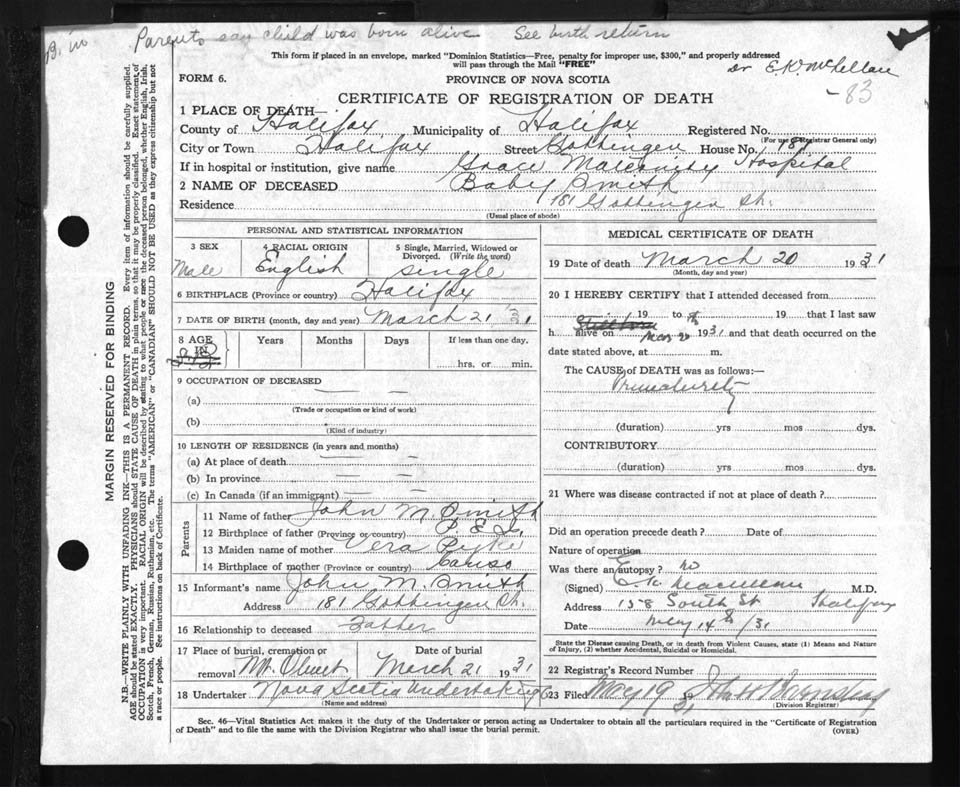 Parents say child was born alive See birth return
This form if placed in an envelope, marked "Dominion Statistics—Free, penalty for improper use, $300," and properly addressed
will pass through the Mail "FREE"
FORM 6.
PROVINCE OF NOVA SCOTIA
Dr E.K. McLellan
CERTIFICATE OF REGISTRATION OF DEATH
-83
1 PLACE OF DEATH—
County of Halifax Municipality of Halifax Registered No.
(For use of Registrar General only)
City or Town Halifax Street Gottingen House No. 181
If in hospital or institution, give name Grace Maternity Hospital
2 NAME OF DECEASED Baby Smith
Residence 181 Gottingen St.
(Usual place of abode)
PERSONAL AND STATISTICAL INFORMATION
3 SEX 4 RACIAL ORIGIN 5 Single, Married, Widowed or Divorced. (Write the word)
Male English Single
6 BIRTHPLACE (Province or country) Halifax
7 DATE OF BIRTH (month, day and year) March 21
8 AGE Years Months Days If less than one day,
hrs. or min.
9 OCCUPATION OF DECEASED
(a)
(Trade or occupation or kind of work)
(b)
(Kind of industry)
10 LENGTH OF RESIDENCE (in years and months)
(a) At place of death
(b) In province
(c) In Canada (if an immigrant)
Parents
11 Name of father John M. Smith
12 Birthplace of father (Province or country) P.E.I.
13 Maiden name of mother Vera
14 Birthplace of mother (Province or country) Canso
15 Informant's name John M. Smith
Address 181 Gottingen St.
16 Relationship to deceased Father
17 Place of burial, cremation or removal Mt. Olivet Date of burial March 21 1931
18 Undertaker Nova Scotia Undertaking Co
(Name and address)
MEDICAL CERTIFICATE OF DEATH
19 Date of death March 20 1931
(Month, day and year)
20 I HEREBY CERTIFY that I attended deceased from
19 to 19 that I last saw
h alive on Mar 20 1931 and that death occurred on the
Stillborn
date stated above, at m.
The CAUSE of DEATH was as follows:—
Prematurity
(duration) yrs mos dys.
CONTRIBUTORY
(duration) yrs mos dys.
21 Where was disease contracted if not at place of death?
Did an operation precede death? Date of
Nature of operation
Was there an autopsy? no
(Signed) E.K. M.D.
Address 158 South St Halifax
Date May 14th/31
State the Disease causing Death, or in death from Violent Causes, state (1) Means and Nature
of Injury, (2) whether Accidental, Suicidal or Homicidal.
22 Registrar's Record Number
23 Filed May 19 31
(Division Registrar)
Sec. 46—Vital Statistics Act makes it the duty of the Undertaker or person acting as Undertaker to obtain all the particulars required in the "Certificate of Registration
of Death" and to file the same with the Division Registrar who shall issue the burial permit. (OVER)
MARGIN RESERVED FOR BINDING
N.B.—WRITE PLAINLY WITH UNFADING INK—THIS IS A PERMANENT RECORD. Every item of information should be carefully supplied.
AGE should be stated EXACTLY. PHYSICIANS should STATE CAUSE OF DEATH in plain terms, so that it may be properly classified. Exact statement of
OCCUPATION is very important. RACIAL ORIGIN will be described by stating to what people or race the deceased person belonged, whether English, Irish,
Scotch, French, German, Russian, Ruthenian, etc. The terms "AMERICAN" or "CANADIAN" SHOULD NOT BE USED as they express citizenship but not
a race or people. See instructions on back of Certificate.